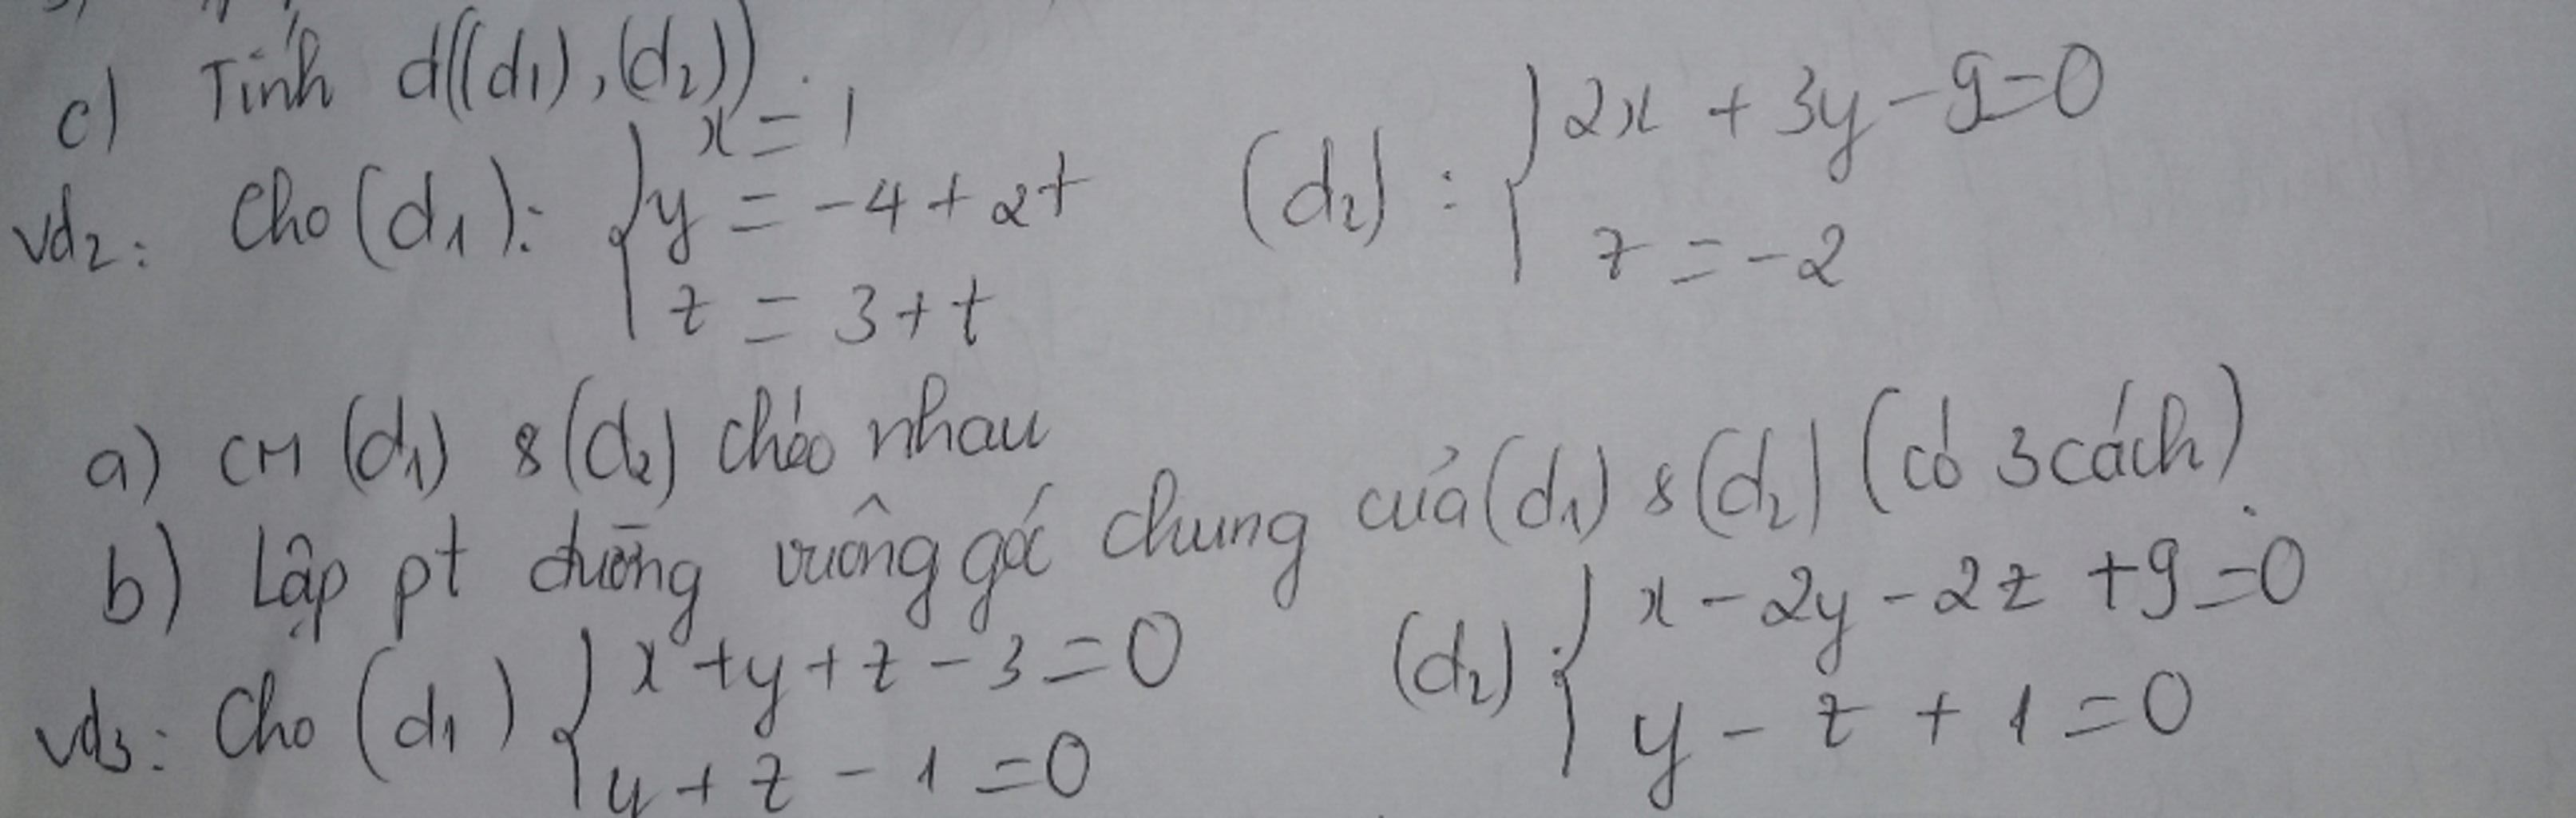 c) Tính d((d1), (d2)).
vd2: Cho (d1): { x = 1
y = -4 + 2t
z = 3 + t
(d2): { 2x + 3y - 9 = 0
z = -2
a) CM (d1) & (d2) chéo nhau
b) Lập pt đường vuông góc chung của (d1) & (d2) (có 3 cách).
vd3: Cho (d1) { x + y + z - 3 = 0
y + z - 1 = 0
(d2): { x - 2y - 2z + 9 = 0
y - z + 1 = 0